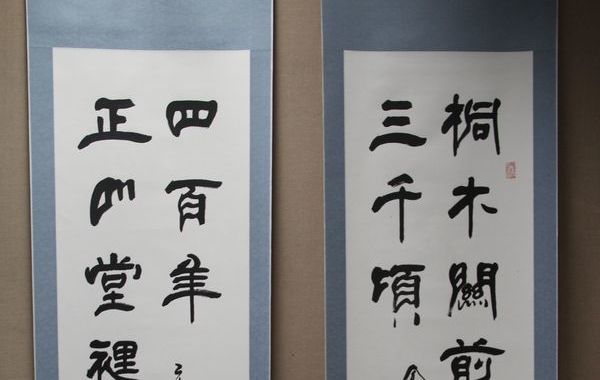 桐木關前
三千頃
四百年
正山堂裡